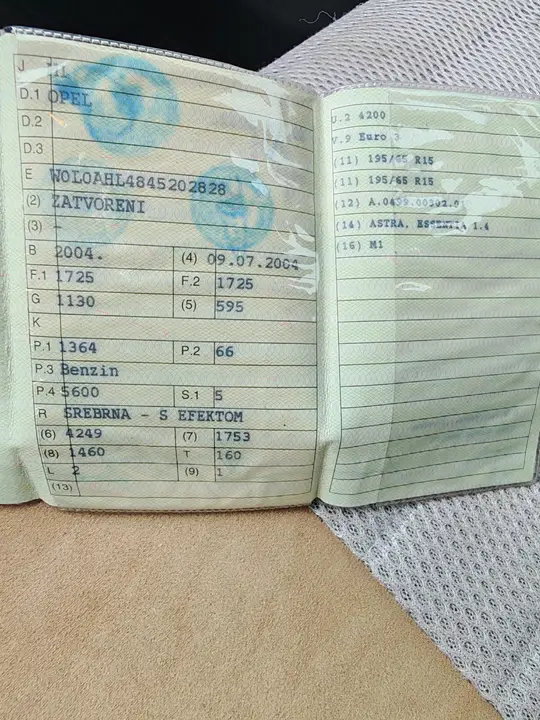 J M1
D.1 OPEL
D.2
D.3
E W0L0AHL4845202828
(2) ZATVORENI
(3) -
B 2004. (4) 09.07.2004
F.1 1725 F.2 1725
G 1130 (5) 595
K
P.1 1364 P.2 66
P.3 Benzin
P.4 5600 S.1 5
R SREBRNA - S EFEKTOM
(6) 4249 (7) 1753
(8) 1460 T 160
L 2 (9) 1
(13)
U.2 4200
V.9 Euro 3
(11) 195/65 R15
(11) 195/65 R15
(12)
(14) ASTRA, ESSENTIA 1.4
(16) M1